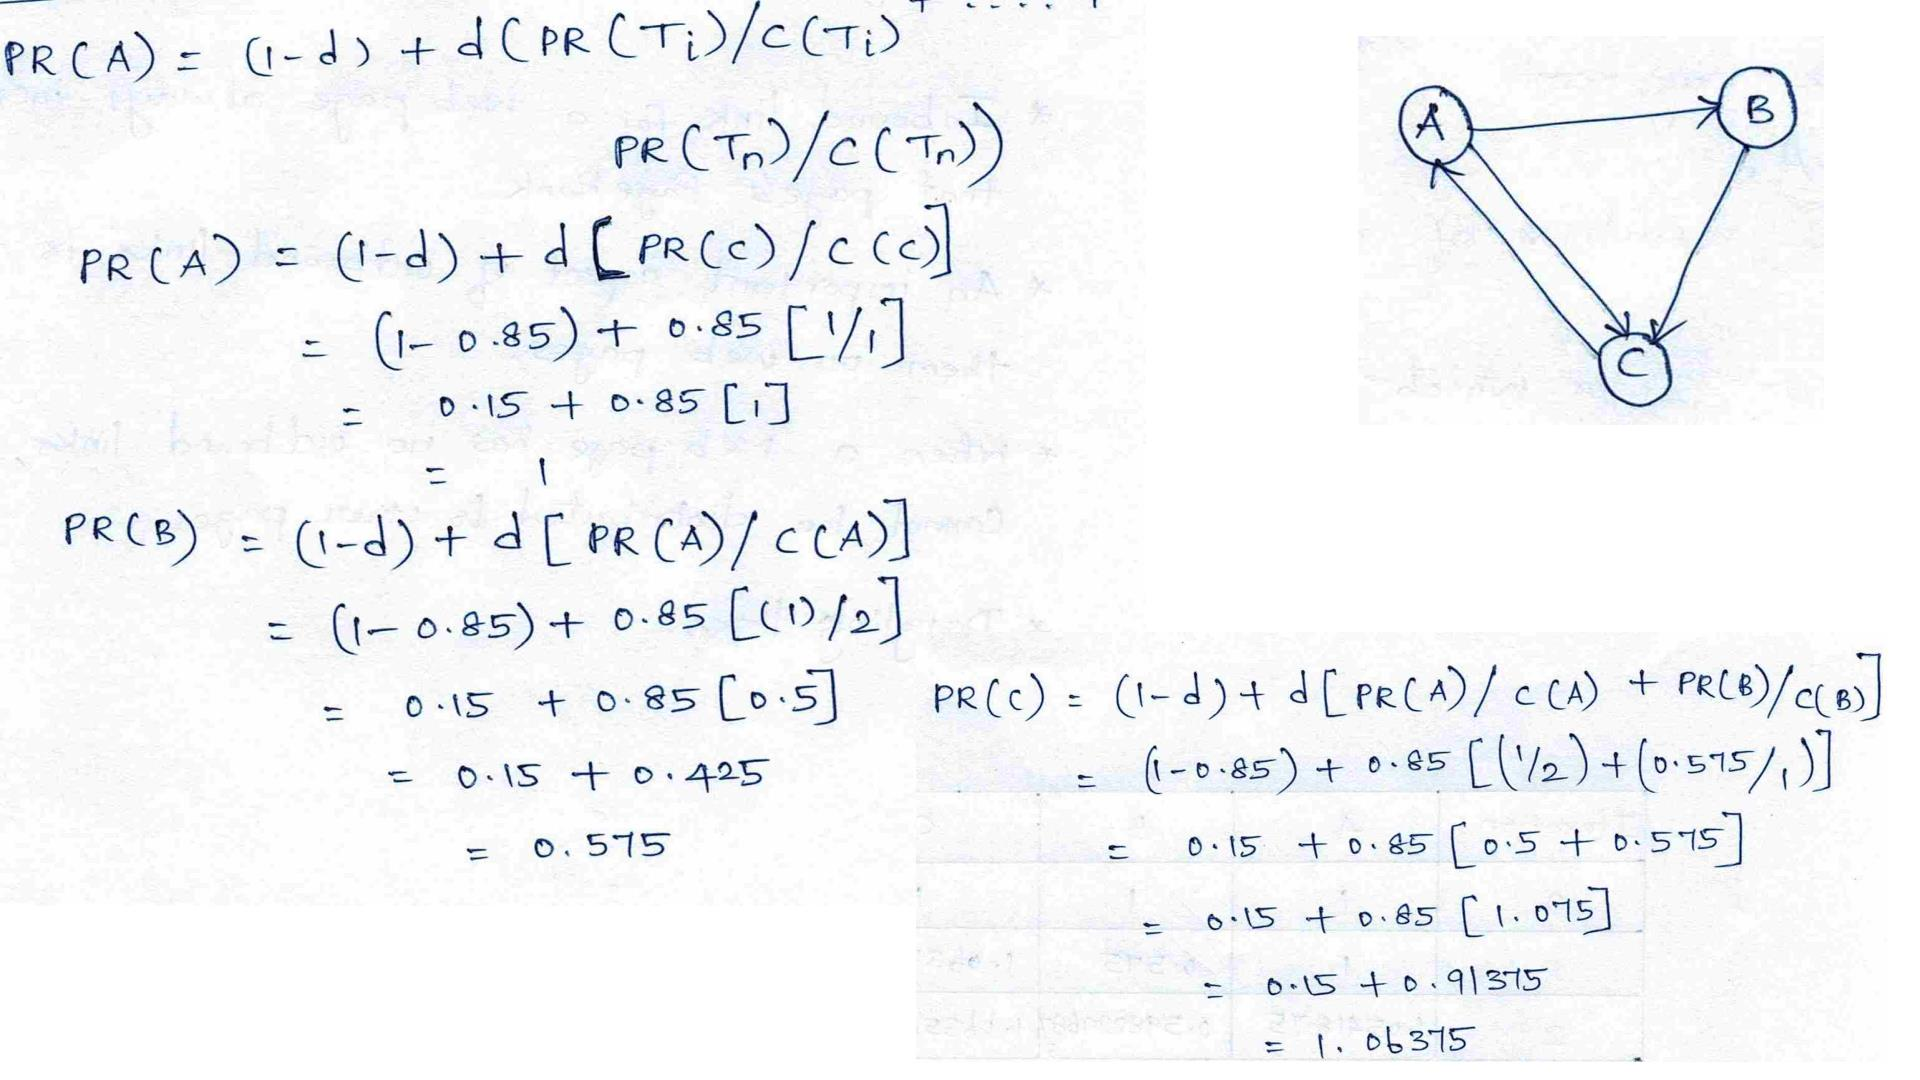 PR(A) = (1-d) + d(PR(Ti)/C(Ti) + .....+
PR(Tn)/C(Tn))
PR(A) = (1-d) + d[PR(C)/C(C)]
= (1-0.85) + 0.85[1/1]
= 0.15 + 0.85[1]
= 1
PR(B) = (1-d) + d[PR(A)/C(A)]
= (1-0.85) + 0.85[(1)/2]
= 0.15 + 0.85[0.5]
= 0.15 + 0.425
= 0.575
A
B
C
PR(C) = (1-d) + d[PR(A)/C(A) + PR(B)/C(B)]
= (1-0.85) + 0.85[(1/2) + (0.575/1)]
= 0.15 + 0.85[0.5 + 0.575]
= 0.15 + 0.85[1.075]
= 0.15 + 0.91375
= 1.06375